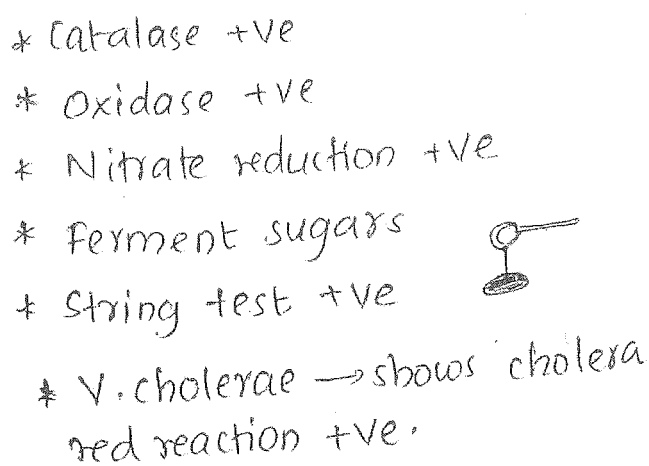 * Catalase +ve
* Oxidase +ve
* Nitrate reduction +ve
* Ferment sugars
* String test +ve
* V. cholerae → shows cholera
red reaction +ve.